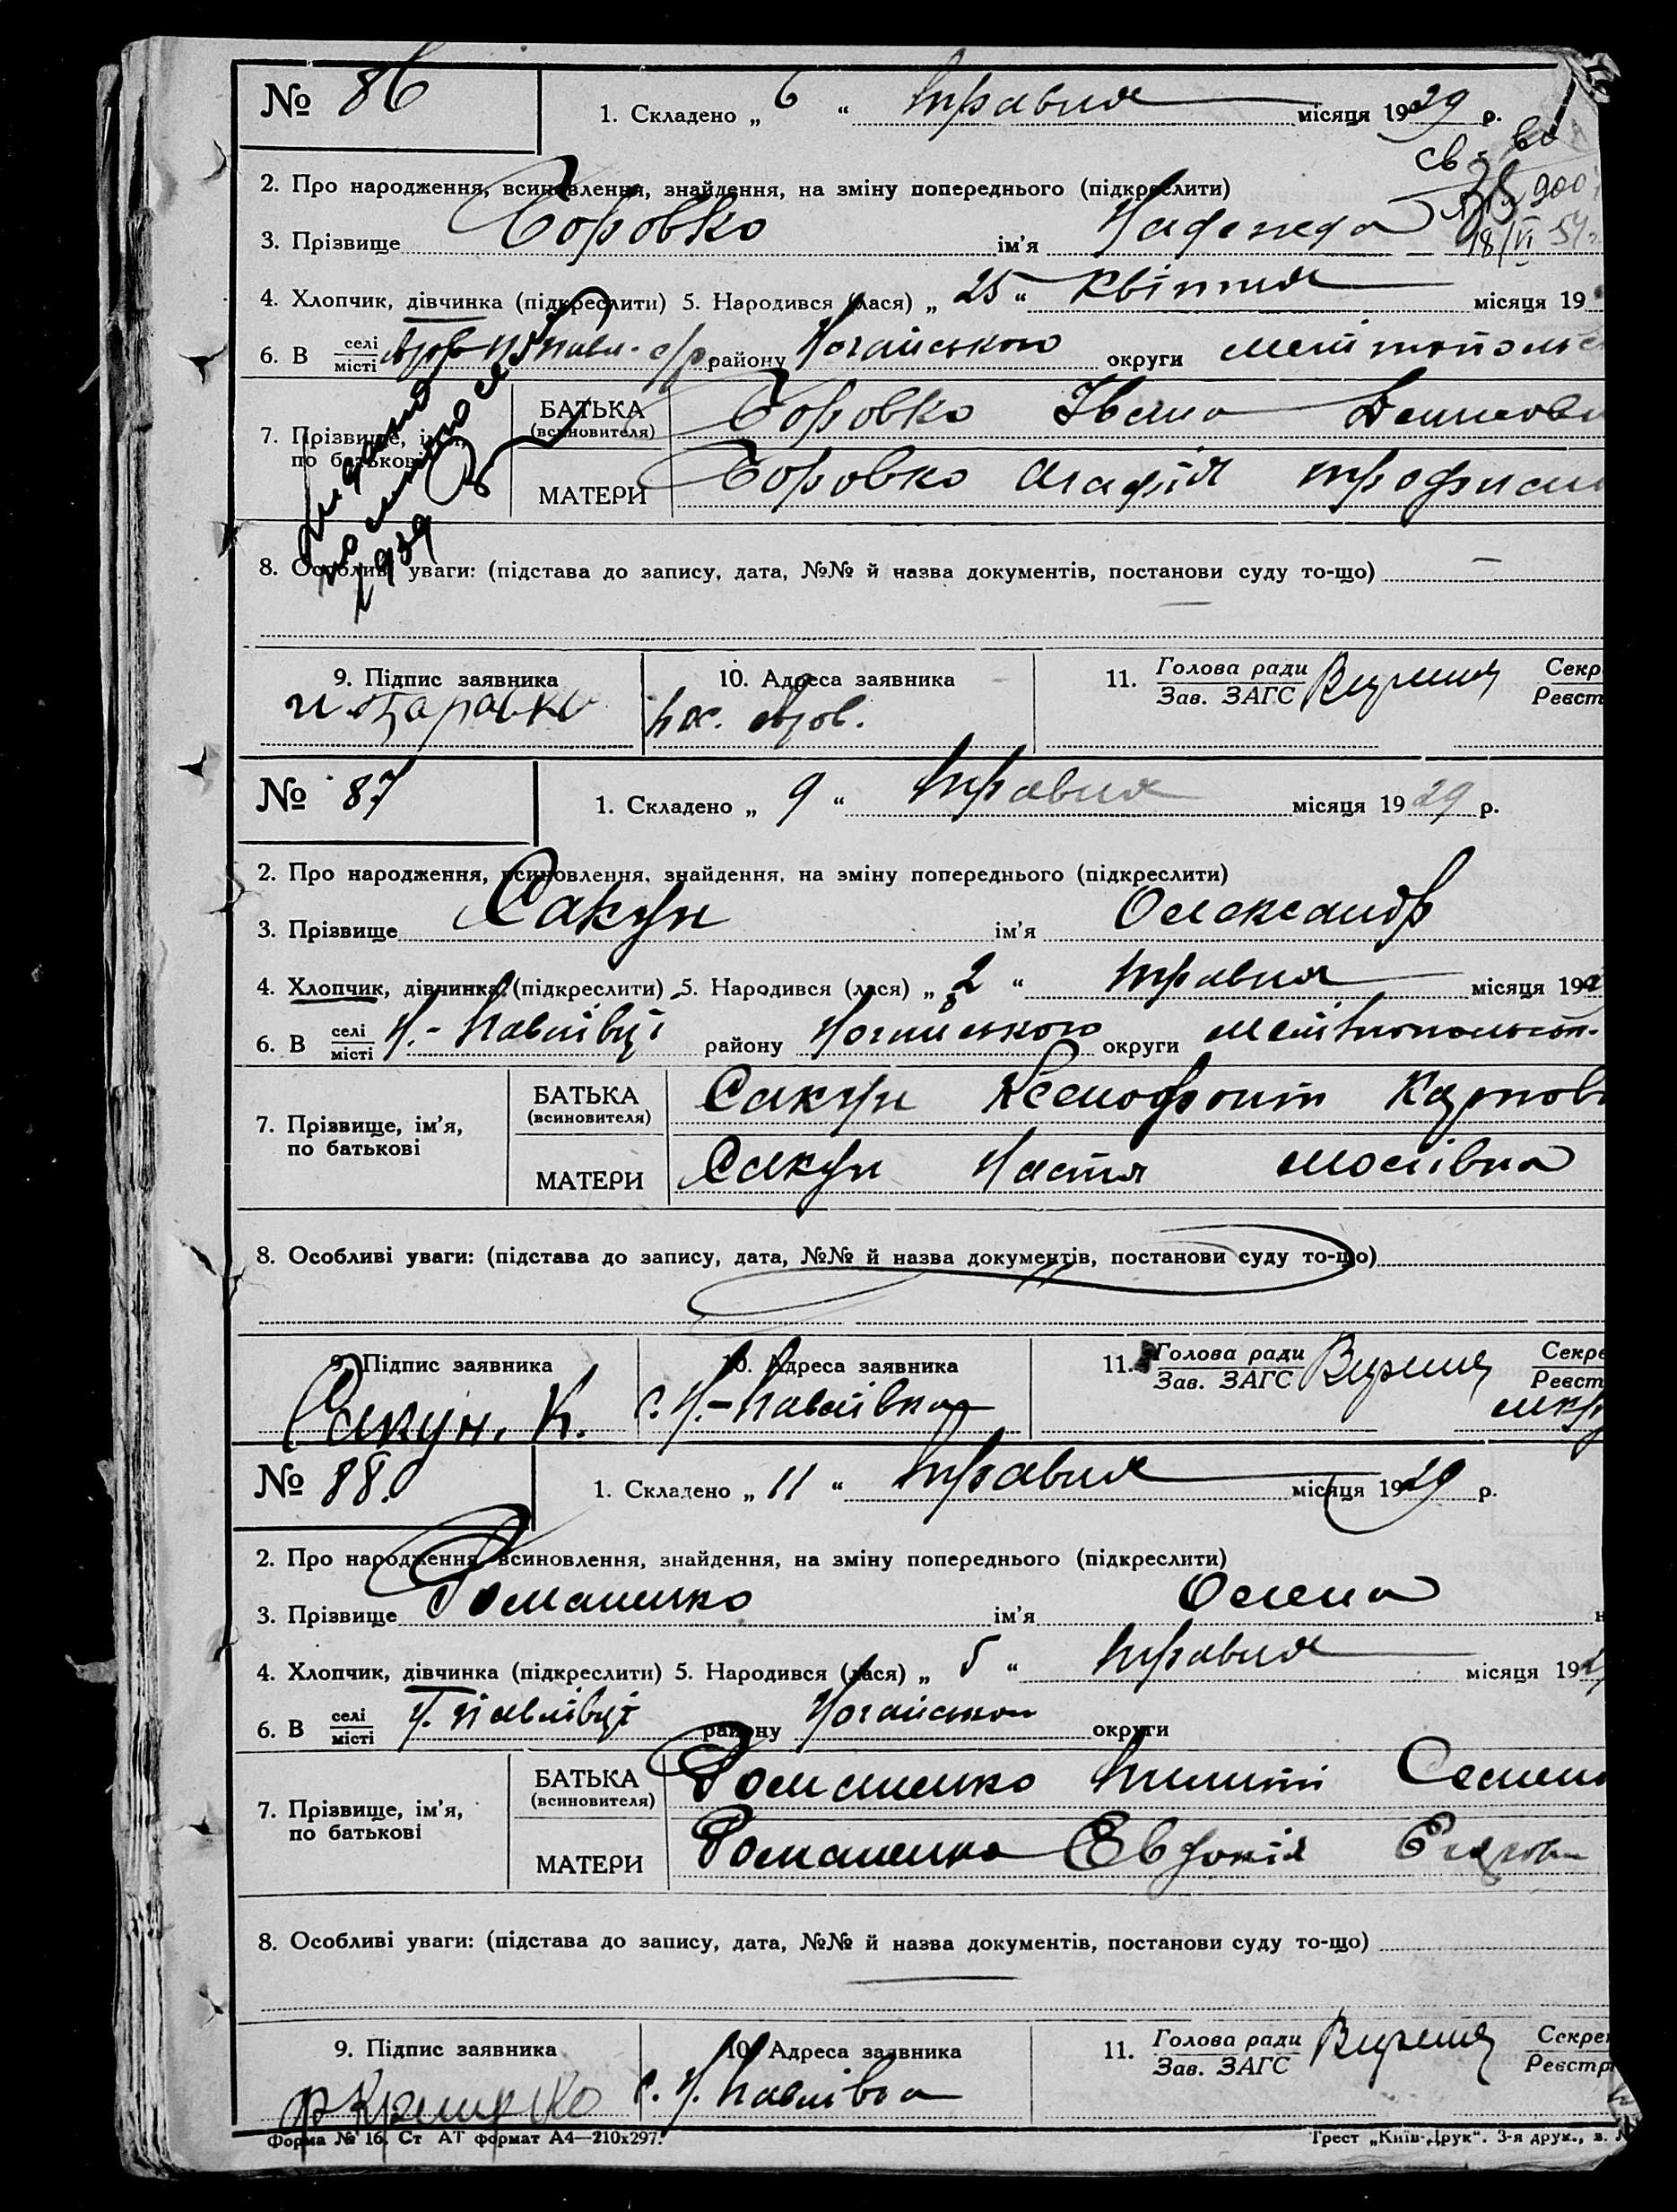 № 86
1. Складено „ 6 “ травня місяця 1929 р.
св-во
18/VI
2. Про народження, всиновлення, знайдення, на зміну попереднього (підкреслити)
3. Прізвище Боровко ім’я Надежда
4. Хлопчик, дівчинка (підкреслити) 5. Народився (лася) „ 25 “ квітня місяця 19
6. В селі місті району Ногайського округи
7. Прізвище, ім’я, по батькові
БАТЬКА (всиновителя) Боровко Іван
МАТЕРИ Боровко Агафія
1939
8. Особливі уваги: (підстава до запису, дата, №№ й назва документів, постанови суду то-що) —
9. Підпис заявника 10. Адреса заявника 11. Голова ради Секр
Зав. ЗАГС Реєст
№ 87
1. Складено „ 9 “ травня місяця 1929 р.
2. Про народження, всиновлення, знайдення, на зміну попереднього (підкреслити)
3. Прізвище Сакун ім’я Олександр
4. Хлопчик, дівчинка (підкреслити) 5. Народився (лася) „ 2 “ травня місяця 192
6. В селі місті Н.-Павлівці району Ногайського округи
7. Прізвище, ім’я, по батькові
БАТЬКА (всиновителя) Сакун Ксенофонт Карпов
МАТЕРИ Сакун Настя
8. Особливі уваги: (підстава до запису, дата, №№ й назва документів, постанови суду то-що)
9. Підпис заявника 10. Адреса заявника 11. Голова ради Секре
Зав. ЗАГС Реєст
Сакун. К. с. Н.-Павлівка
№ 88
1. Складено „ 11 “ травня місяця 1929 р.
2. Про народження, всиновлення, знайдення, на зміну попереднього (підкреслити)
3. Прізвище Романенко ім’я Олена
4. Хлопчик, дівчинка (підкреслити) 5. Народився (лася) „ 5 “ травня місяця 192
6. В селі місті Н. Павлівці району Ногайськом округи
7. Прізвище, ім’я, по батькові
БАТЬКА (всиновителя) Романенко
МАТЕРИ Романенко Евдокія
8. Особливі уваги: (підстава до запису, дата, №№ й назва документів, постанови суду то-що)
9. Підпис заявника 10. Адреса заявника 11. Голова ради Секре
Зав. ЗАГС Реєстр
с. Н. Павлівка
Форма № 16. Ст АТ формат А4—210х297.
Трест „Київ-Друк“. 3-я друк., з.